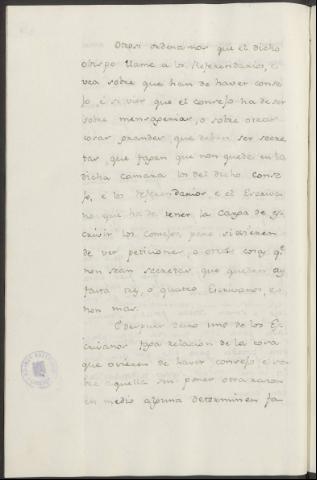 Otrosi ordenamos que el dicho
obispo llame a los Referendarios, e
vea sobre que han de haver conse
jo, e si vier que el consejo ha de ser
sobre mensagerias, o sobre otras
cosas grandes, que deban ser secre
tas, que fagan que non quede en la
dicha camara los del dicho conse
jo, e los referendarios, e el Escriva
no que ha de tener la carga de es
crivir los consejos, pero si ovieren
de ver peticiones, o otras cosas qe
non sean secretas, que queden ay
fasta tres, o quatro Escrivanos, e
non mas.
E despues dello uno de los Es
crivanos faga relacion de la cosa
que ovieren de haver consejo e so
bre aquella sin poner otra razon
en medio alguna determinen fa